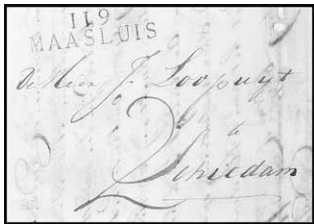 119
MAASLUIS
De Heer J. Loopuyt
te
Schiedam